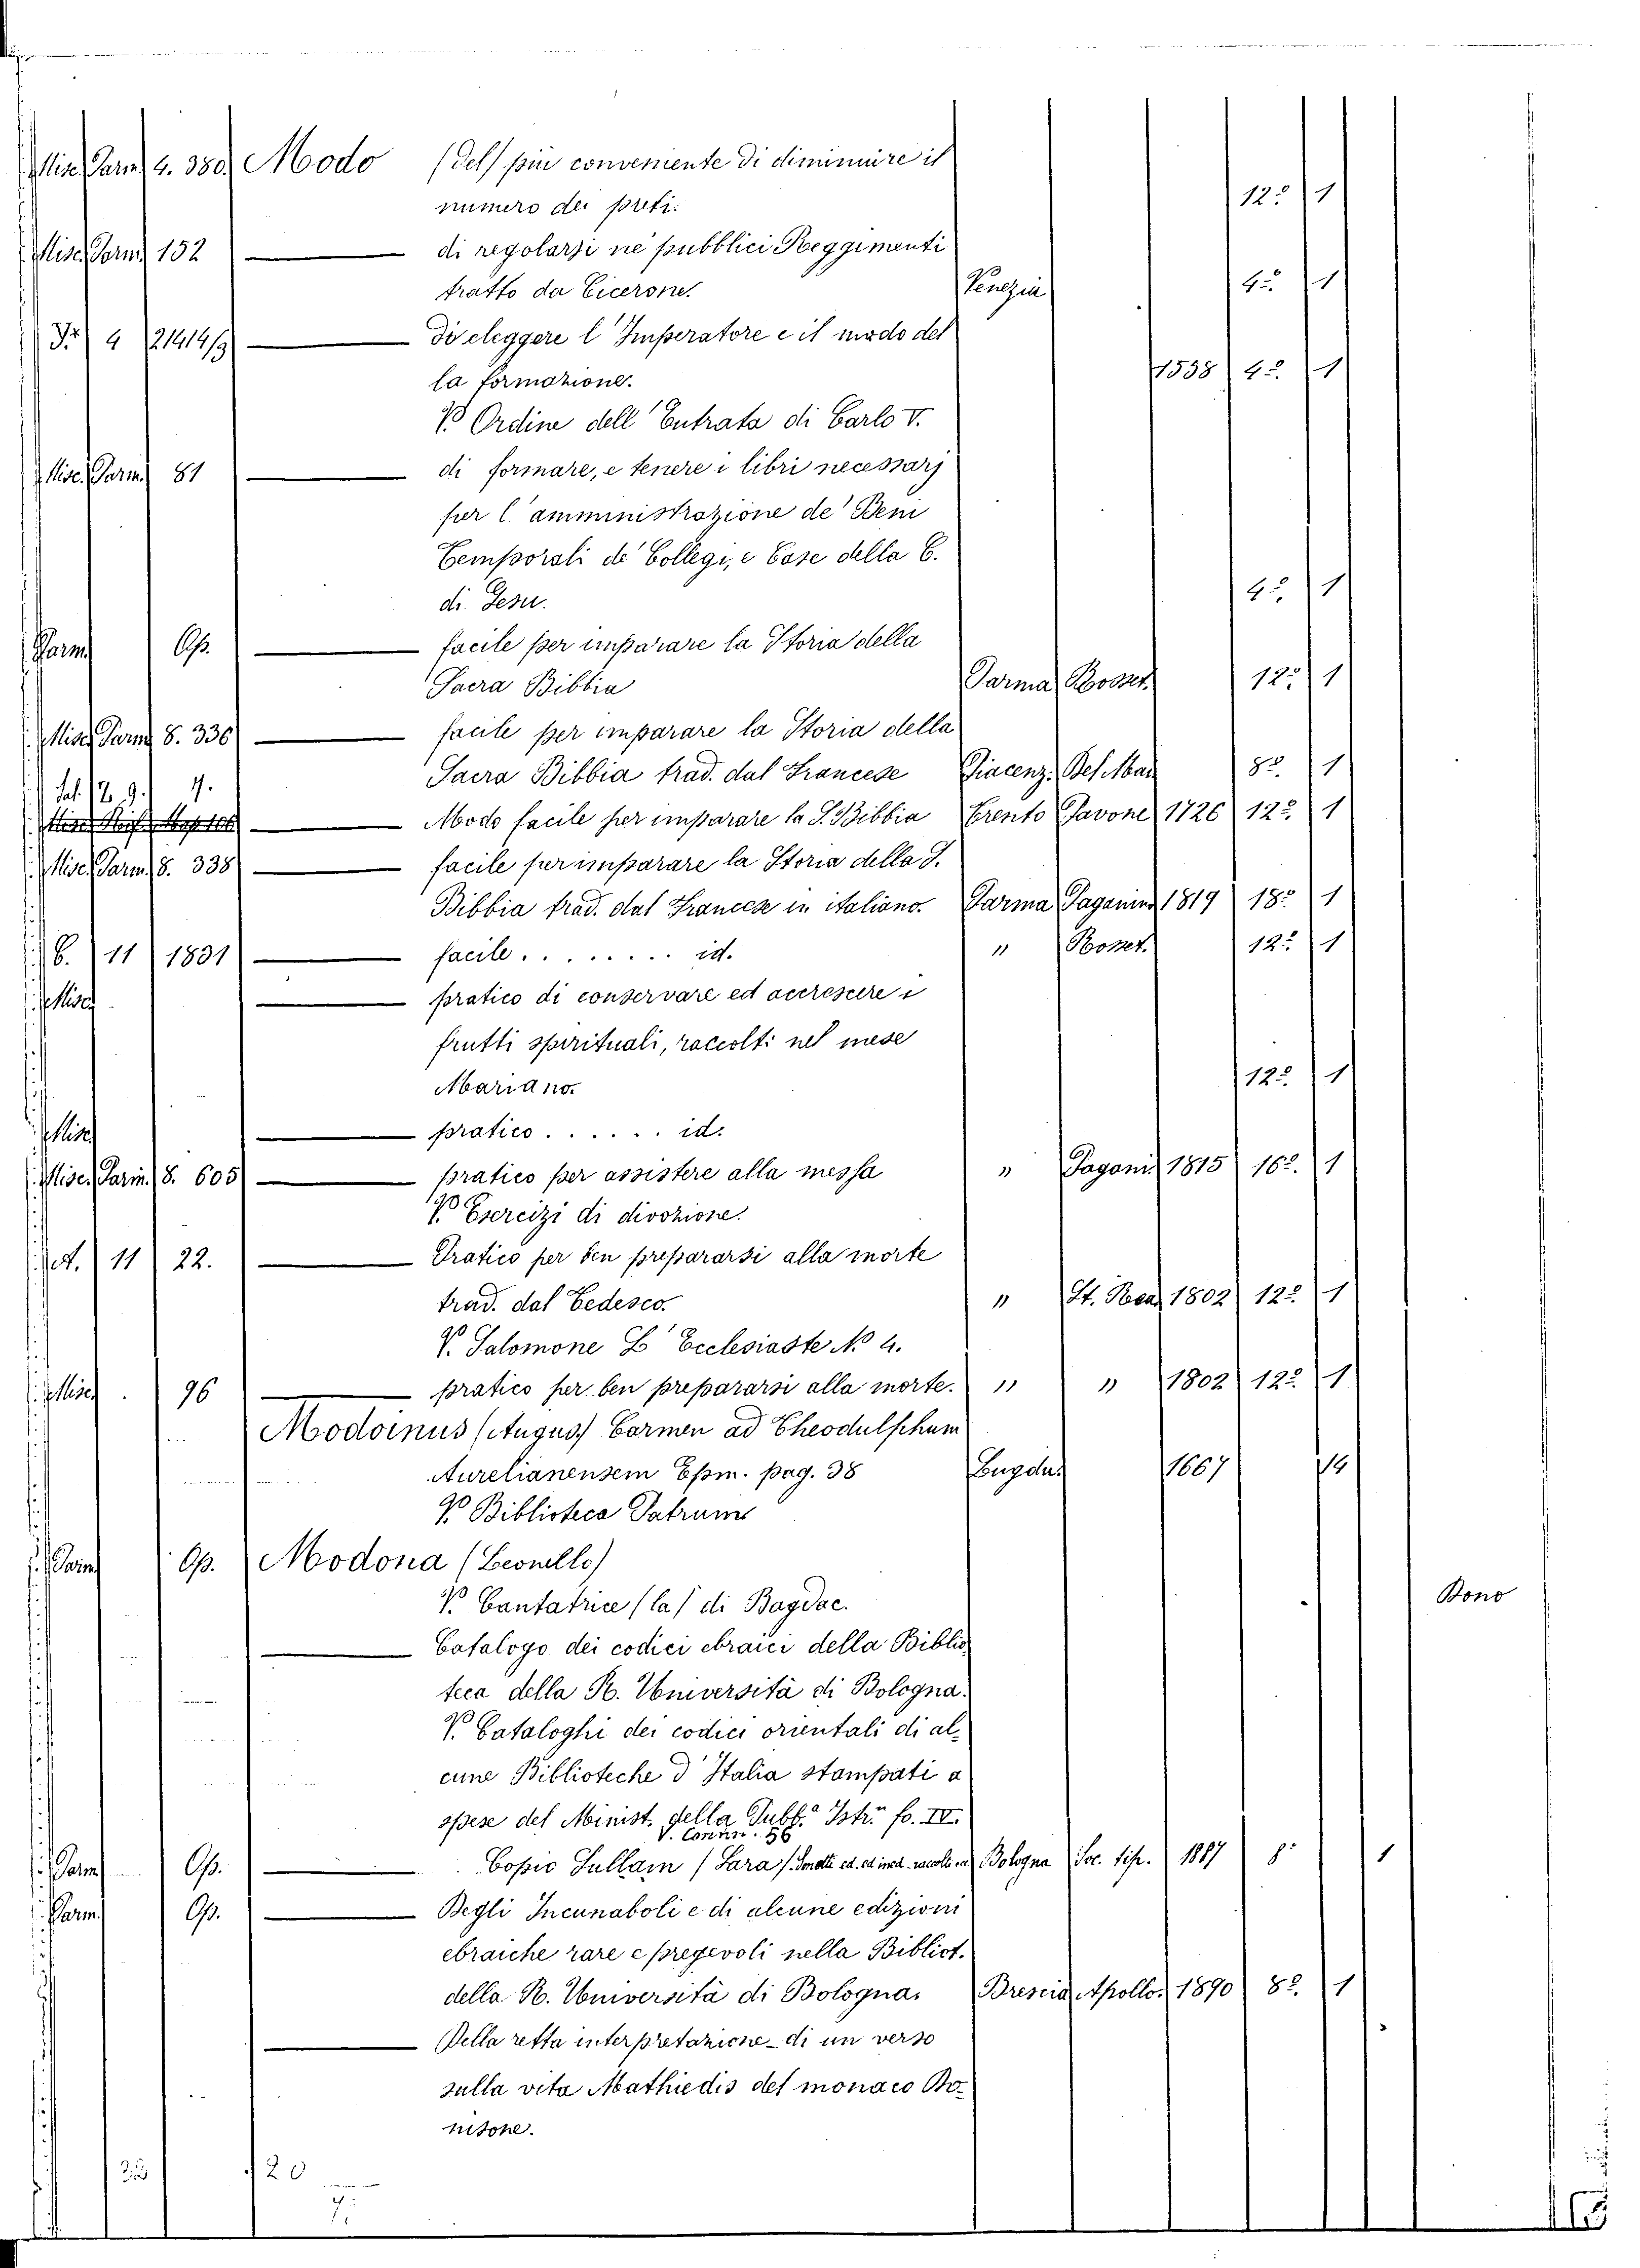 Misc. Parm. 4. 380. Modo (del) più conveniente di diminuire il 12.° 1
numero dei preti.
Misc. Parm. 152 di regolarsi ne' pubblici Reggimenti
tratto da Cicerone. Venezia 4.° 1
4 21414/3 Di eleggere l'Imperatore e il modo del
la formazione. 1538 4.° 1
V. Ordine dell'Entrata di Carlo V.
Misc. Parm. 81 di formare, e tenere i libri necessarj
per l'amministrazione de' Beni
Temporali de' Collegi, e Case della C.
di Gesu. 4.° 1
Parm. Op. facile per imparare la Storia della
Sacra Bibbia Parma Rosset. 12.° 1
Misc. Parm. 8. 336 facile per imparare la Storia della
Sacra Bibbia trad. dal Francese Piacenz. Del Mai 8.° 1
Sal. 12 9. 7.
Modo facile per imparare la S. Bibbia Trento Pavone 1726 12.° 1
Misc. Parm. 8. 338 facile per imparare la Storia della S.
Bibbia trad. dal Francese in italiano. Parma Paganino 1819 18.° 1
C. 11 1831 facile . . . . . . . . id. " Rosset. 12.° 1
Misc. pratico di conservare ed accrescere i
frutti spirituali, raccolti nel mese
Mariano. 12.° 1
Misc. pratico . . . . . . id.
Misc. Parm. 8. 605 pratico per assistere alla messa " Pagani 1815 16.° 1
V. Esercizi di divozione.
A. 11 22. Pratico per ben prepararsi alla morte
trad. dal Tedesco. " St. Rea. 1802 12.° 1
V. Salomone L'Ecclesiaste N.° 4.
Misc. 96 pratico per ben prepararsi alla morte. " " 1802 12.° 1
Modoinus (Augus.) Carmen ad Theodulphum
Aurelianensem Epm. pag. 38 Lugdu. 1667 14
V. Biblioteca Patrum
Parm. Op. Modona (Leonello)
V. Cantatrice (la) di Bagdac. Bono
Catalogo dei codici ebraici della Biblio
teca della R. Università di Bologna.
V. Cataloghi dei codici orientali di al
cune Biblioteche d'Italia stampati a
spese del Minist. della Pubb.ª Istr. f. IV.
V. Contin. 56
Parm. Op. Copio Sullam (Sara) Sonetti ed. ed ined. raccolti ed Bologna Soc. tip. 1887 8.° 1
Parm. Op. Degli Incunaboli e di alcune edizioni
ebraiche rare e pregevoli nella Bibliot.
della R. Università di Bologna. Brescia Apollo. 1890 8.° 1
Della retta interpretazione di un verso
sulla vita Mathiedis del monaco Do
nisone.
20
7.